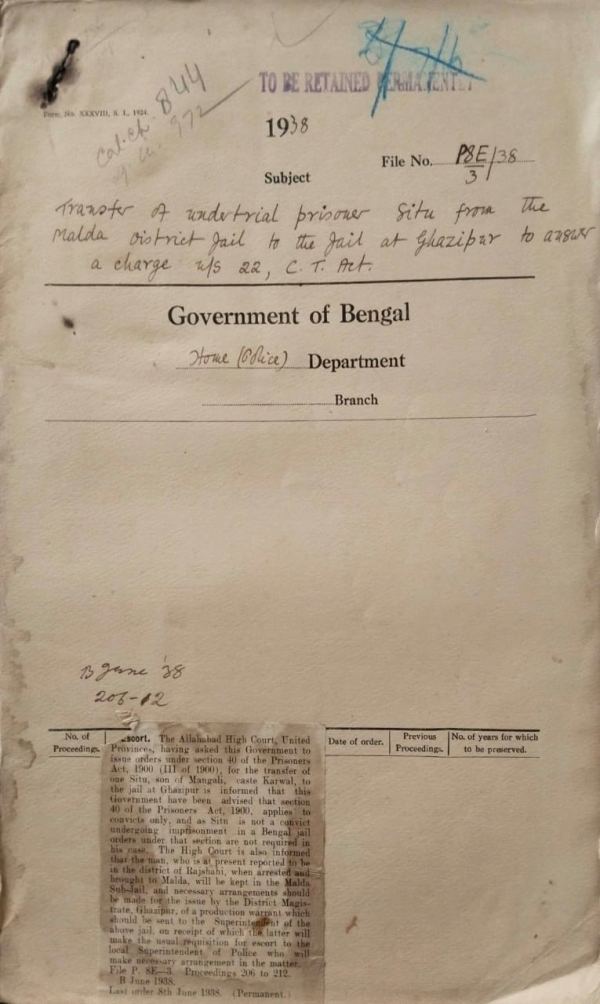 TO BE RETAINED PERMANENTLY
Form. No. XXXVIII, S. I., 1924.
Cal.ch. 844
972
1938
File No. P8E/38
3
Subject
Transfer of undertrial prisoner Situ from the
Malda District Jail to the Jail at Ghazipur to answer
a charge u/s 22, C. T. Act.
Government of Bengal
Home (Police) Department
Branch
B June '38
206-12
No. of
Proceedings.
Date of order.
Previous
Proceedings.
No. of years for which
to be preserved.
Escort. The Allahabad High Court, United
Provinces, having asked this Government to
issue orders under section 40 of the Prisoners
Act, 1900 (III of 1900), for the transfer of
one Situ, son of Mangali, caste Karwal, to
the jail at Ghazipur is informed that this
Government have been advised that section
40 of the Prisoners Act, 1900, applies to
convicts only, and as Situ is not a convict
undergoing imprisonment in a Bengal jail
orders under that section are not required in
his case. The High Court is also informed
that the man, who is at present reported to be
in the district of Rajshahi, when arrested and
brought to Malda, will be kept in the Malda
Sub-Jail, and necessary arrangements should
be made for the issue by the District Magis-
trate, Ghazipur, of a production warrant which
should be sent to the Superintendent of the
above jail, on receipt of which the latter will
make the usual requisition for escort to the
local Superintendent of Police who will
make necessary arrangement in the matter.
File P. 8E—3. Proceedings 206 to 212.
B June 1938.
Last order 8th June 1938. (Permanent.)